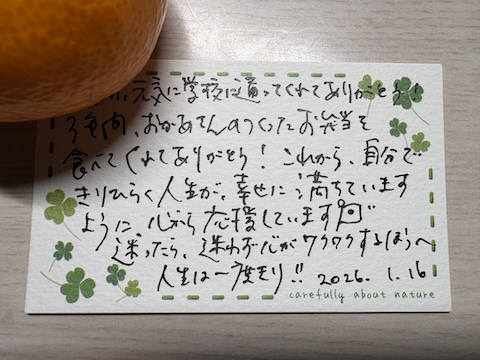 元気に学校に通ってくれてありがとう!
3年間、おかあさんのつくったお弁当を
食べてくれてありがとう! これから、自分で
きりひらく人生が、幸せに満ちています
ように、心から応援しています
迷ったら、迷わず心がワクワクするほうへ
人生は一度キリ!! 2026. 1.16
carefully about nature